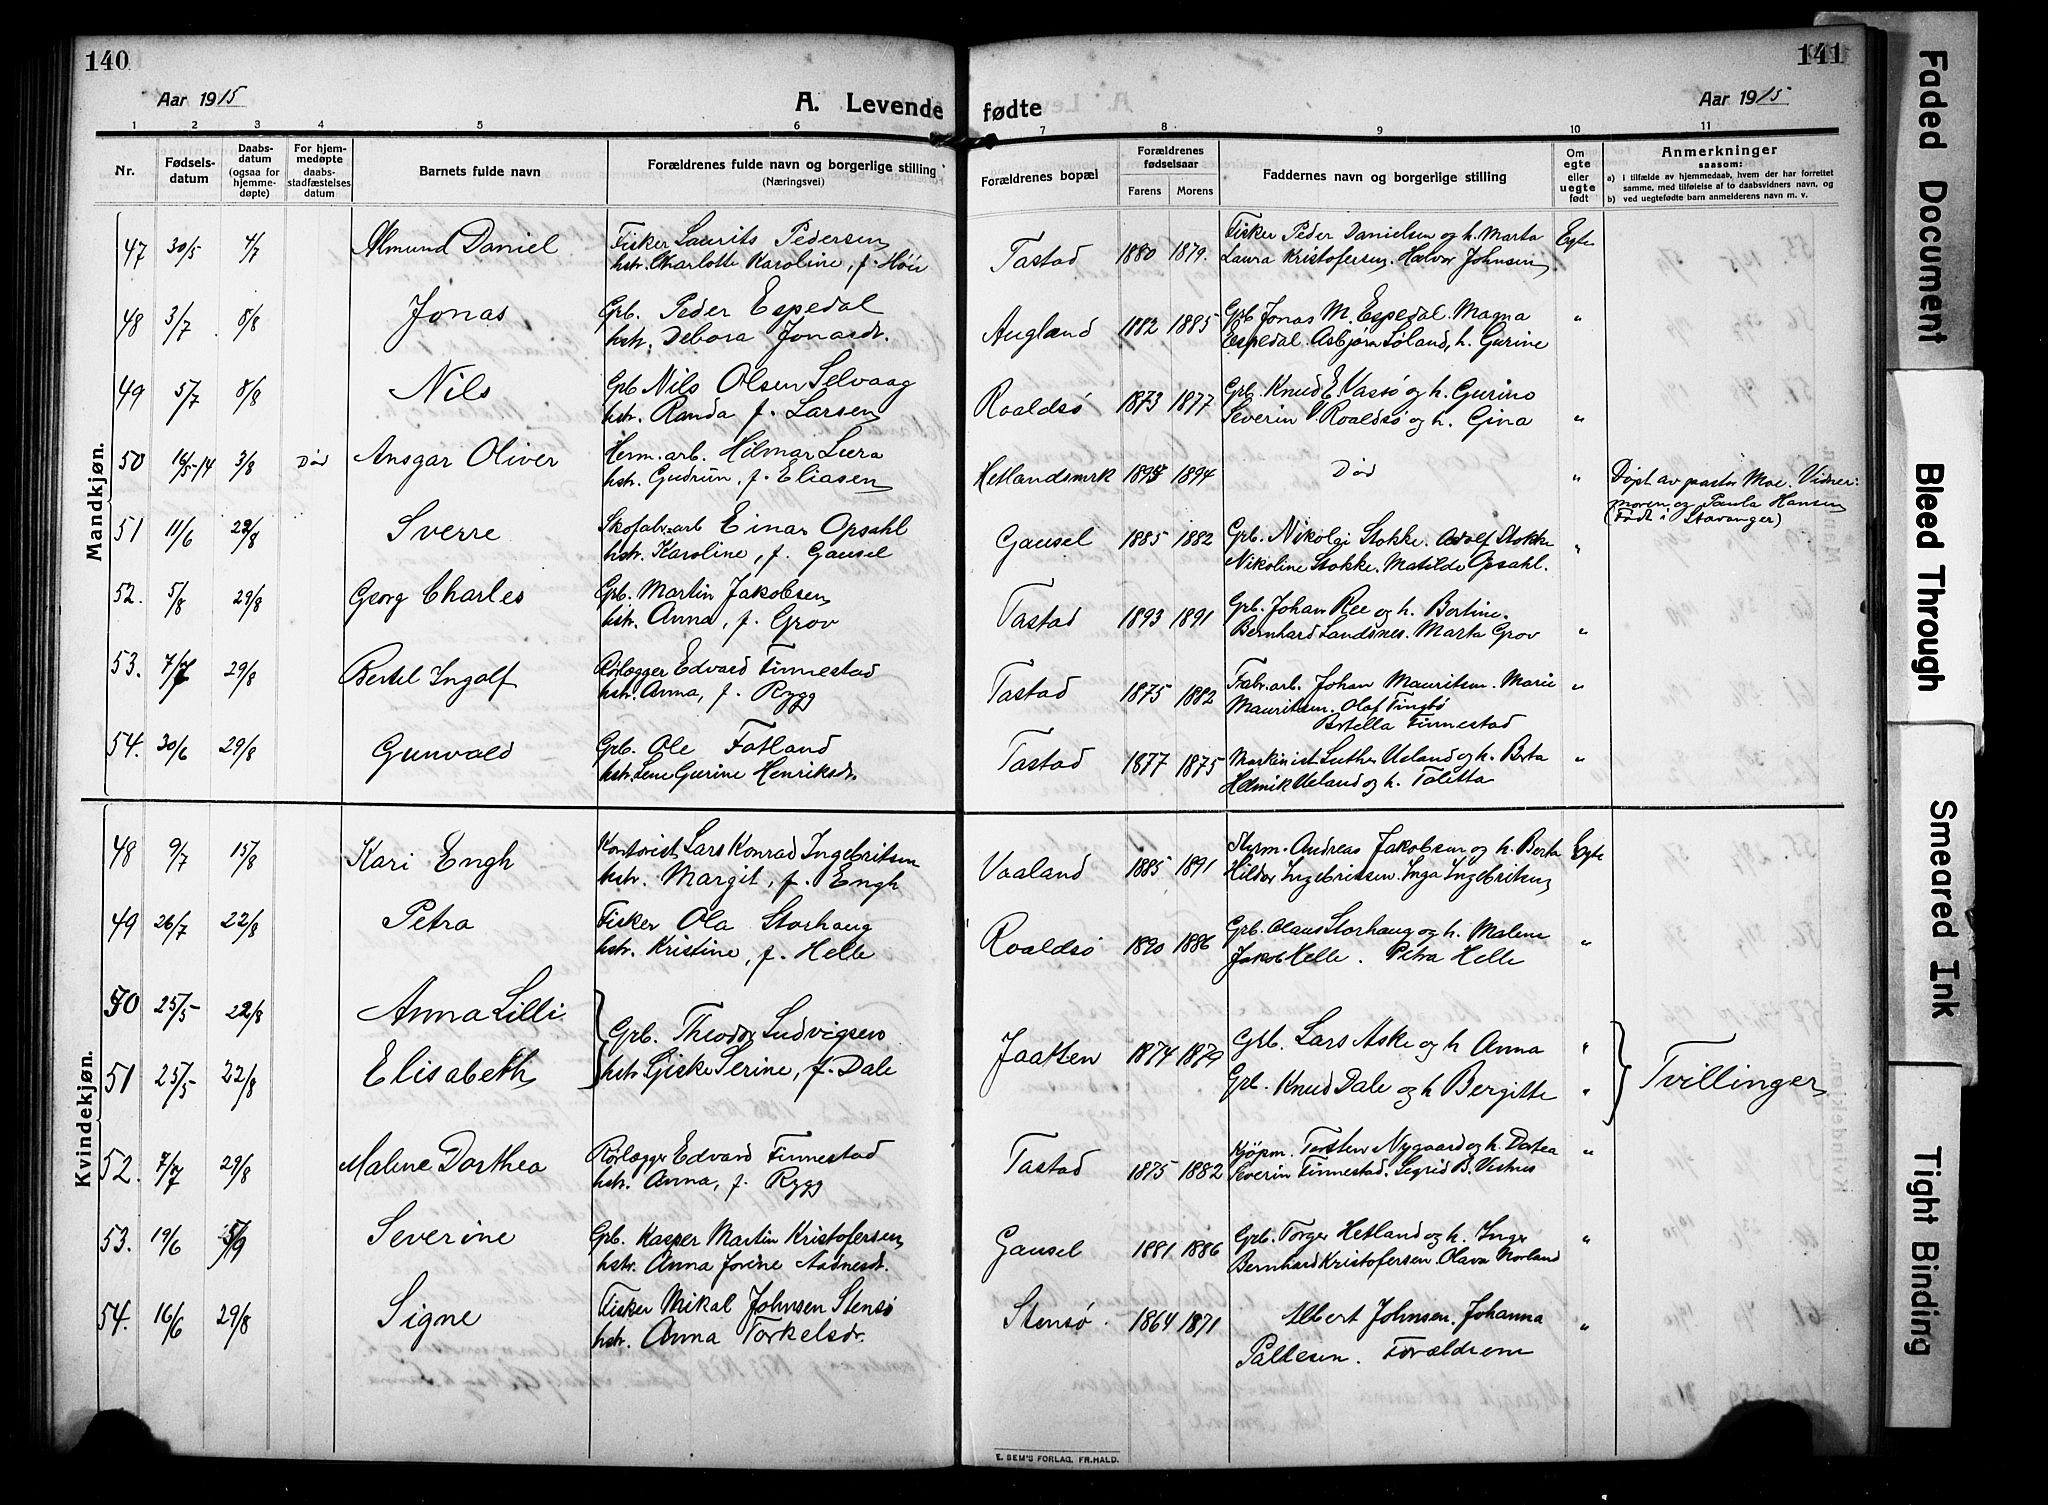 140
Aar 1915
A. Levende
1 2 3 4 5 6
Nr.
Fødsels-
datum
Daabs-
datum
(ogsaa for
hjemme-
døpte)
For hjem-
medøpte
daabs-
stadfæstelses
datum
Barnets fulde navn
Forældrenes fulde navn og borgerlige stilling
(Næringsvei)
Mandkjøn.
47 30/5 4/7 Almund Daniel Fisker Laurits Pedersen
hstr. Charlotte Karoline, f. Høie
48 3/7 8/8 Jonas Grb. Peder Espedal
hstr. Debora Jonasdr.
49 5/7 8/8 Nils Grb Nils Olsen Selvaag
hstr. Randa f. Larsen
50 16/5-14 3/8 Død Ansgar Oliver Herm. arb. Hilmar Lura
hstr. Gudrun, f. Eliasen
51 11/6 22/8 Sverre Skofabr.arb Einar Opsahl
hstr. Karoline, f. Gausel
52. 5/8 29/8 Georg Charles Grb. Martin Jakobsen
hstr. Anna, f. Grov
53. 7/7 29/8 Bertel Ingolf Rørlægger Edvard Finnestad
hstr. Anna, f. Rygg
54. 30/6 29/8 Gunvald Grb. Ole Fatland
hstr. Lene Gurine Henriksdr.
Kvindekjøn.
48 9/7 15/8 Kari Engh Kontorist Lars Konrad Ingebritsen
hstr. Margit, f. Engh
49 26/7 22/8 Petra Fisker Ola Storhaug
hstr. Kristine, f. Helle
50 25/5 22/8 Anna Lilli
Grb. Theodor Ludvigsen
51 25/5 22/8 Elisabeth hstr. Giske Serine, f. Dale
52. 7/7 29/8 Malene Dorthea Rørlægger Edvard Finnestad
hstr. Anna, f. Rygg
53. 19/6 5/9 Severine Grb. Kasper Martin Kristofersen
hstr. Anna Jorine Aadnesdr.
54. 16/6 29/8 Signe Fisker Mikal Johnsen Stensø
hstr. Anna Torkelsdr.
141
Aar 1915
fødte
7 8 9 10 11
Forældrenes bopæl
Forældrenes
fødselsaar
Farens Morens
Faddernes navn og borgerlige stilling
Om
egte
eller
uegte
født
Anmerkninger
saasom:
a) I tilfælde av hjemmedaab, hvem der har forrettet
samme, med tilføielse af to daabsvidners navn, og
b) ved uegtefødte barn anmelderens navn m. v.
Fisker Peder Danielsen og h. Marta Egte
Tastad 1880 1879. Laura Kristofersen. Halvor Johnsen
Grb Jonas M. Espedal. Magna "
Augland 1882 1885 Espedal. Asbjørn Løland, h. Gurine
Grb. Knud E. Vassø og h. Gurine
Roaldsø 1873 1877 Severin Roaldsø og h. Gina "
Hetlandsmrk 1894 Død " Døpt av pastor Moe. Vidner:
moren og Paula Hansen
(Født i Stavanger)
Gausel 1885 1882 Grb. Nikolai Stokke. Adolf Stokke "
Nikoline Stokke. Matilde Opsahl.
Tastad 1893 1891 Grb. Johan Ree og h. Bertine.
Bernhard Landsnes. Marta Grov "
Fabr.arb. Johan Mauritsen. Marie "
Tastad 1875 1882 Mauritsen. Olaf Tingbø
Bertella Finnestad
Tastad 1877 1875 Maskinist Luther Ueland og h. Berta "
Helmik Ueland og h. Taletta
Styrm. Andreas Jakobsen og h. Berta Egte
Vaaland 1885 1891 Hildor Ingebritsen. Inga Ingebritsen
Grb. Olaus Storhaug og h. Malene
Roaldsø 1890 1886 Jakob Helle. Petra Helle "
Jaatten 1874 1879 Grb. Lars Aske og h Anna "
Grb. Knud Dale og h Bergitte "
Tvillinger
Kjøpm. Torsten Nygaard og h. Dortea "
Tastad 1875 1882 Severin Finnestad. Sigrid B. Vestnes
Grb. Torger Hetland og h. Inger "
Gausel 1881 1886 Bernhard Kristofersen. Olava Norland
Stensø. 1864 1871 Albert Johnsen. Johanna "
Pallesen. Forældrene
E. SEM'S FORLAG, FR.HALD.
Faded Document
Bleed Through
Smeared Ink
Tight Binding